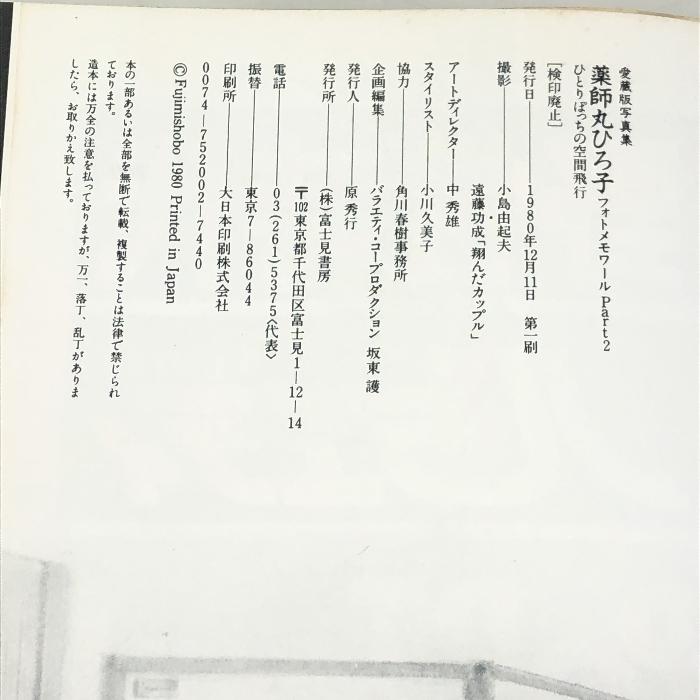 愛蔵版写真集
薬師丸ひろ子フォトメモワール Part 2
ひとりぼっちの空間飛行
[検印廃止]
発行日――1980年12月11日 第一刷
撮影――小島由起夫
遠藤功成「翔んだカップル」
アートディレクター――中 秀雄
スタイリスト――小川久美子
協力――角川春樹事務所
企画編集――バラエティ・コープロダクション 坂東 護
発行人――原 秀行
発行所――(株)富士見書房
〒102東京都千代田区富士見1―12―14
電話――03(261)5375〈代表〉
振替――東京7―86044
印刷所――大日本印刷株式会社
0074―752002―7440
©Fujimishobo 1980 Printed in Japan
本の一部あるいは全部を無断で転載、複製することは法律で禁じられ
ております。
造本には万全の注意を払っておりますが、万一、落丁、乱丁がありま
したら、お取りかえ致します。